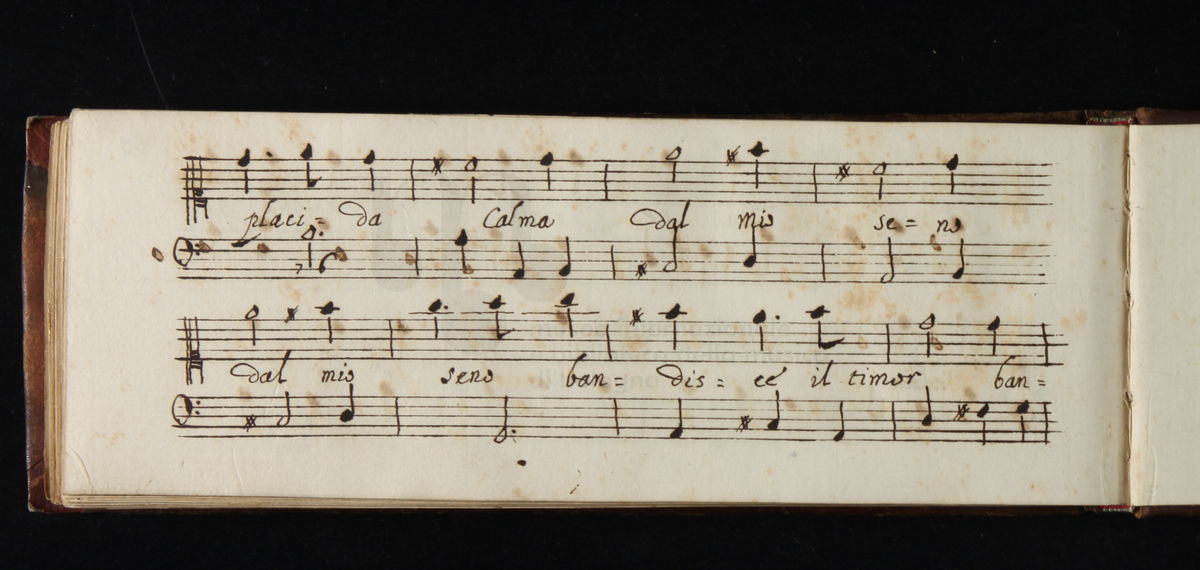 placi= da Calma dal mio se= no
dal mio seno ban= dis= ce il timor ban=